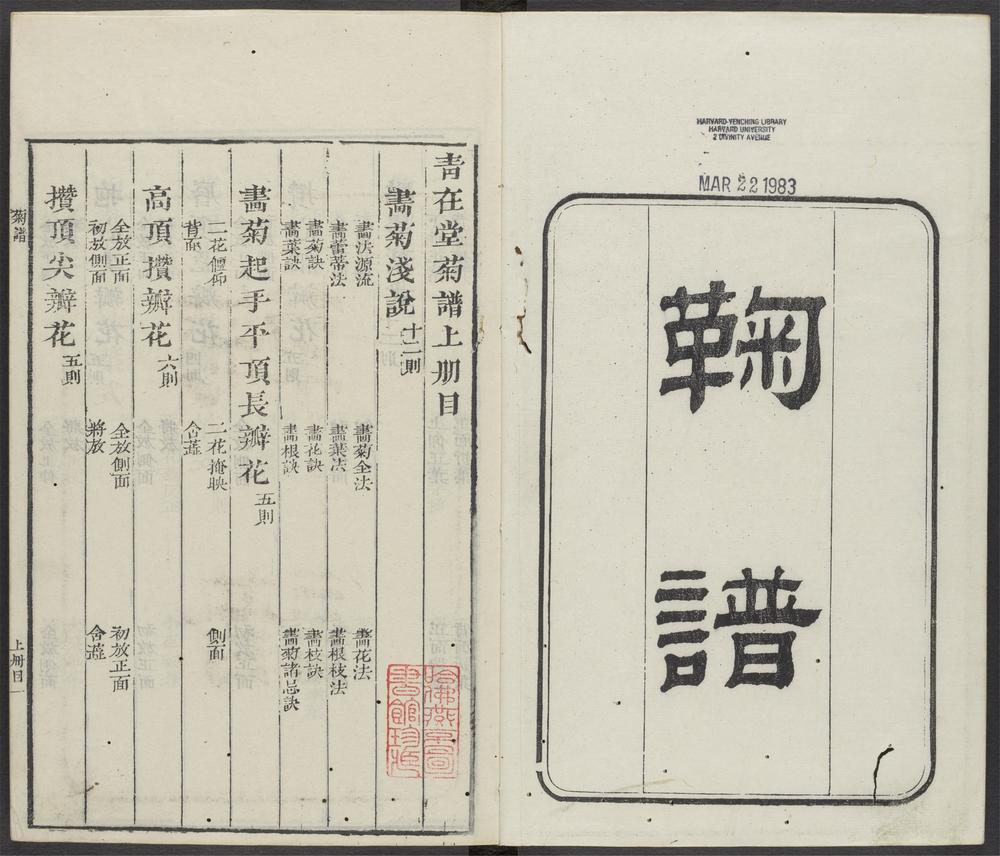 HARVARD-YENCHING LIBRARY
HARVARD UNIVERSITY
2 DIVINITY AVENUE
MAR 22 1983
鞠譜
青在堂菊譜上册目
畫菊淺說 十二則
畫法源流 畫菊全法 畫花法
畫蕾蒂法 畫葉法 畫根枝法
畫菊訣 畫花訣 畫枝訣
畫葉訣 畫根訣 畫菊諸忌訣
畫菊起手平頂長瓣花 五則
二花偃仰 二花掩映 側面
背面 含蕋
高頂攢瓣花 六則
全放正面 全放側面 初放正面
初放側面 將放 含蕋
攢頂尖瓣花 五則
菊譜
上册目一
哈佛燕京圖書館珍藏